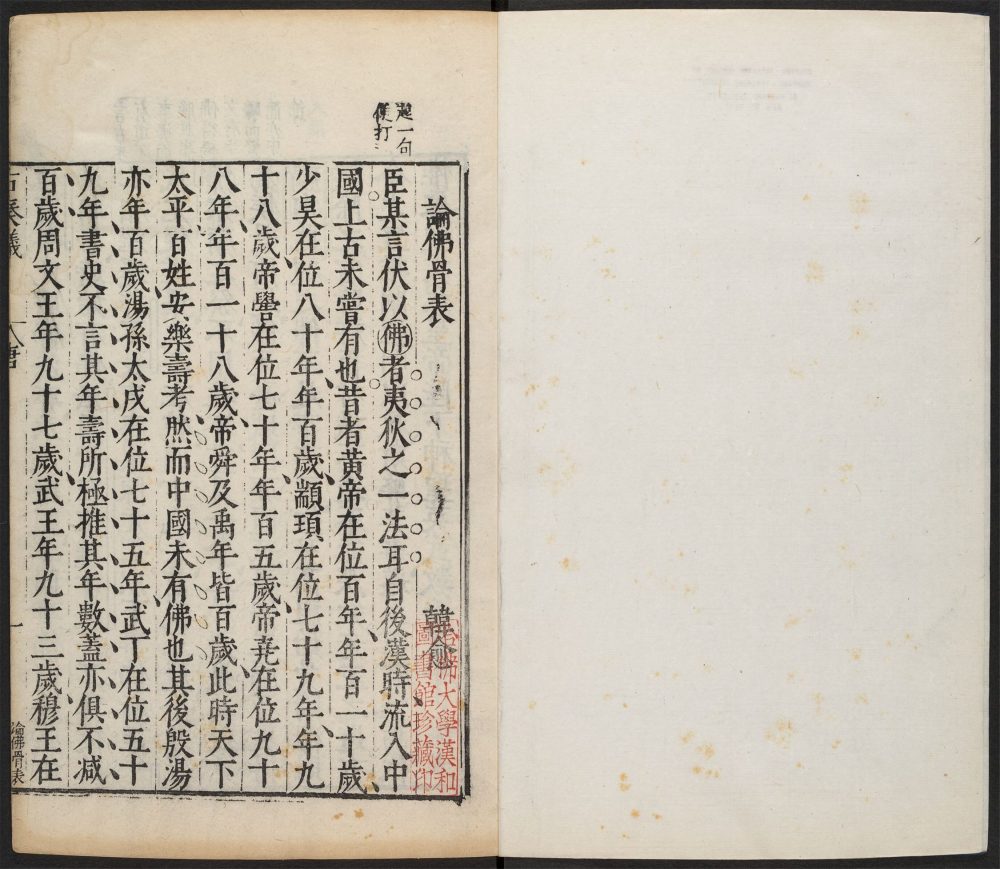 起一句
便打
論佛骨表 韓愈
哈佛大學漢和
圖書館珍藏印
臣某言伏以佛者夷狄之一法耳自後漢時流入中
國上古未嘗有也昔者黃帝在位百年年百一十歲
少昊在位八十年年百歲顓頊在位七十九年年九
十八歲帝嚳在位七十年年百五歲帝堯在位九十
八年年百一十八歲帝舜及禹年皆百歲此時天下
太平百姓安樂壽考然而中國未有佛也其後殷湯
亦年百歲湯孫太戊在位七十五年武丁在位五十
九年書史不言其年壽所極推其年數蓋亦俱不減
百歲周文王年九十七歲武王年九十三歲穆王在
古奏議 唐 一
論佛骨表